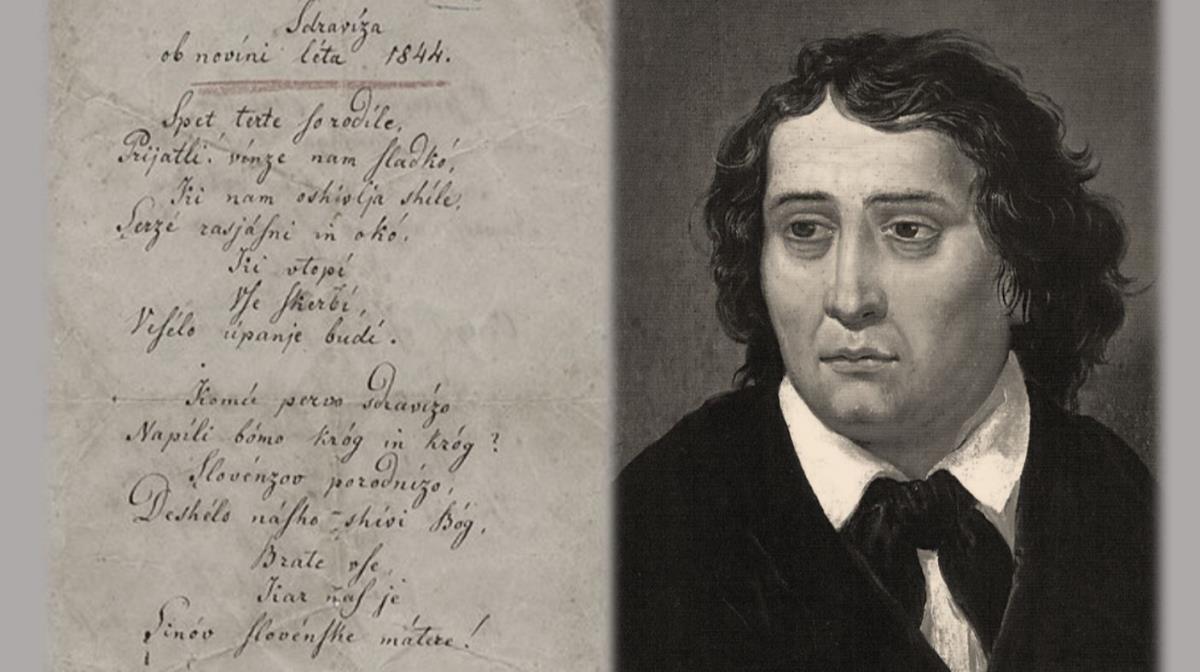 Sdravíza
ob novíni léta 1844.
Spet terte ſo rodíle,
Prijatli! vínze nam ſladkó,
Ki nam oshivlja shíle,
Serzé rasjáſni in okó,
Ki vtopí
Vſe ſkerbí,
Veſélo úpanje budí.
Komú pervo sdravízo
Napíli bómo króg in króg?
Slovénzov porodnízo,
Deshélo náſho shívi Bóg,
Brate vſe,
Kar naſ je
Sinóv ſlovénſke mátere!